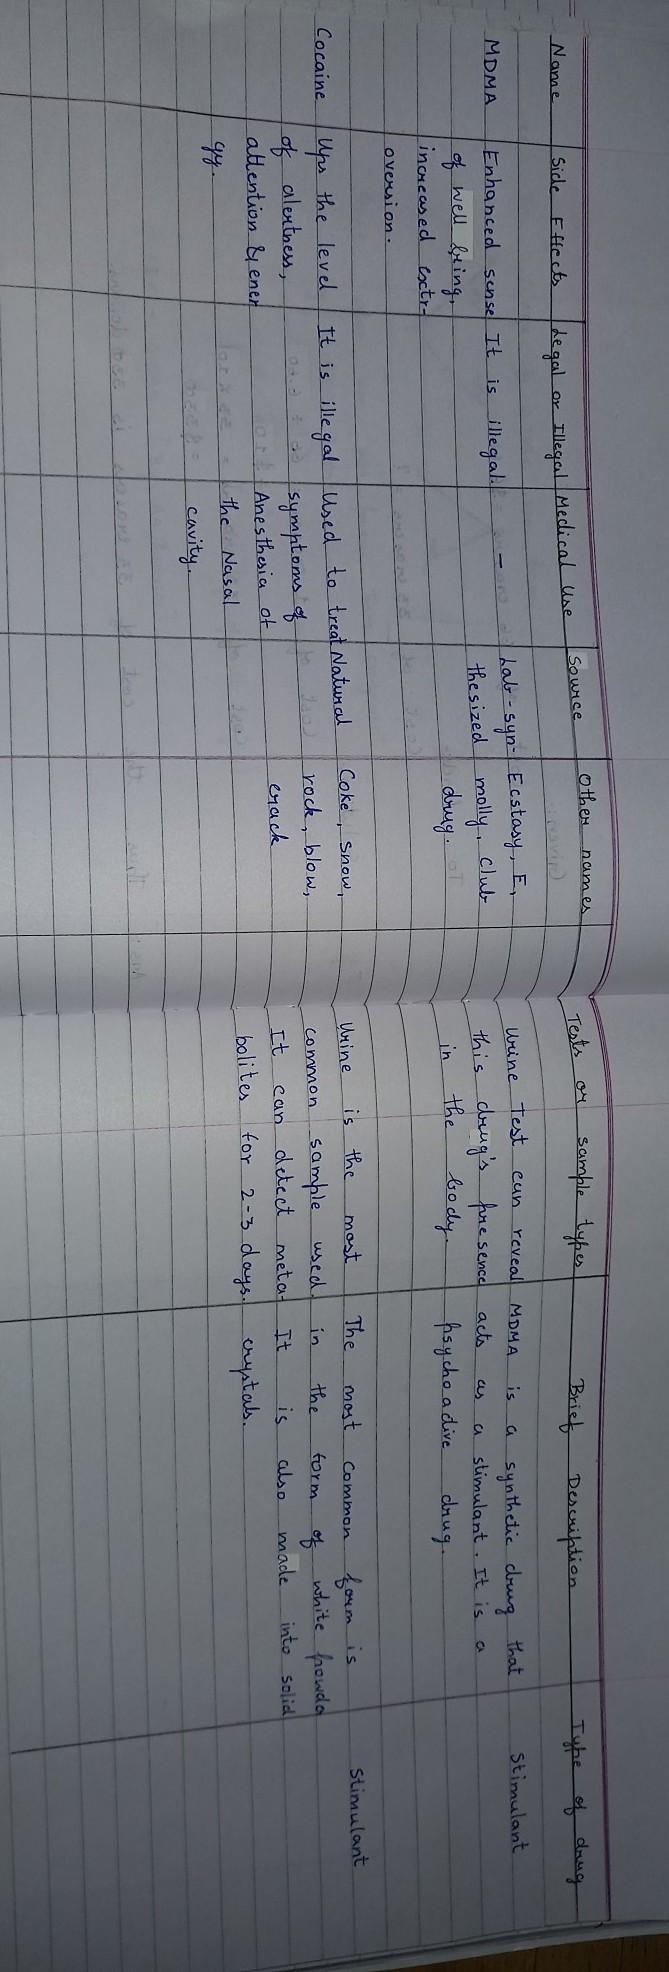 Name Side Effects Legal or Illegal Medical Use Source Other names Tests or sample types Brief Description Type of drug
MDMA
Enhanced sense
of well being,
increased extr-
oversion.
It is illegal.
-
Lab-syn-
thesized
Ecstasy, E,
molly, club
drug.
Urine Test can reveal
this drug's presence
in the body.
MDMA is a synthetic drug that
acts as a stimulant. It is a
psychoadive drug.
Stimulant
Cocaine
Ups the level
of alertness,
attention & ener
gy.
It is illegal
Used to treat
symptoms of
Anesthesia of
the Nasal
cavity.
Natural
Coke, Snow,
rock, blow,
crack
Urine is the most
common sample used.
It can detect meta-
bolites for 2-3 days.
The most common form is
in the form of white powder
It is also made into solid
crystals.
Stimulant